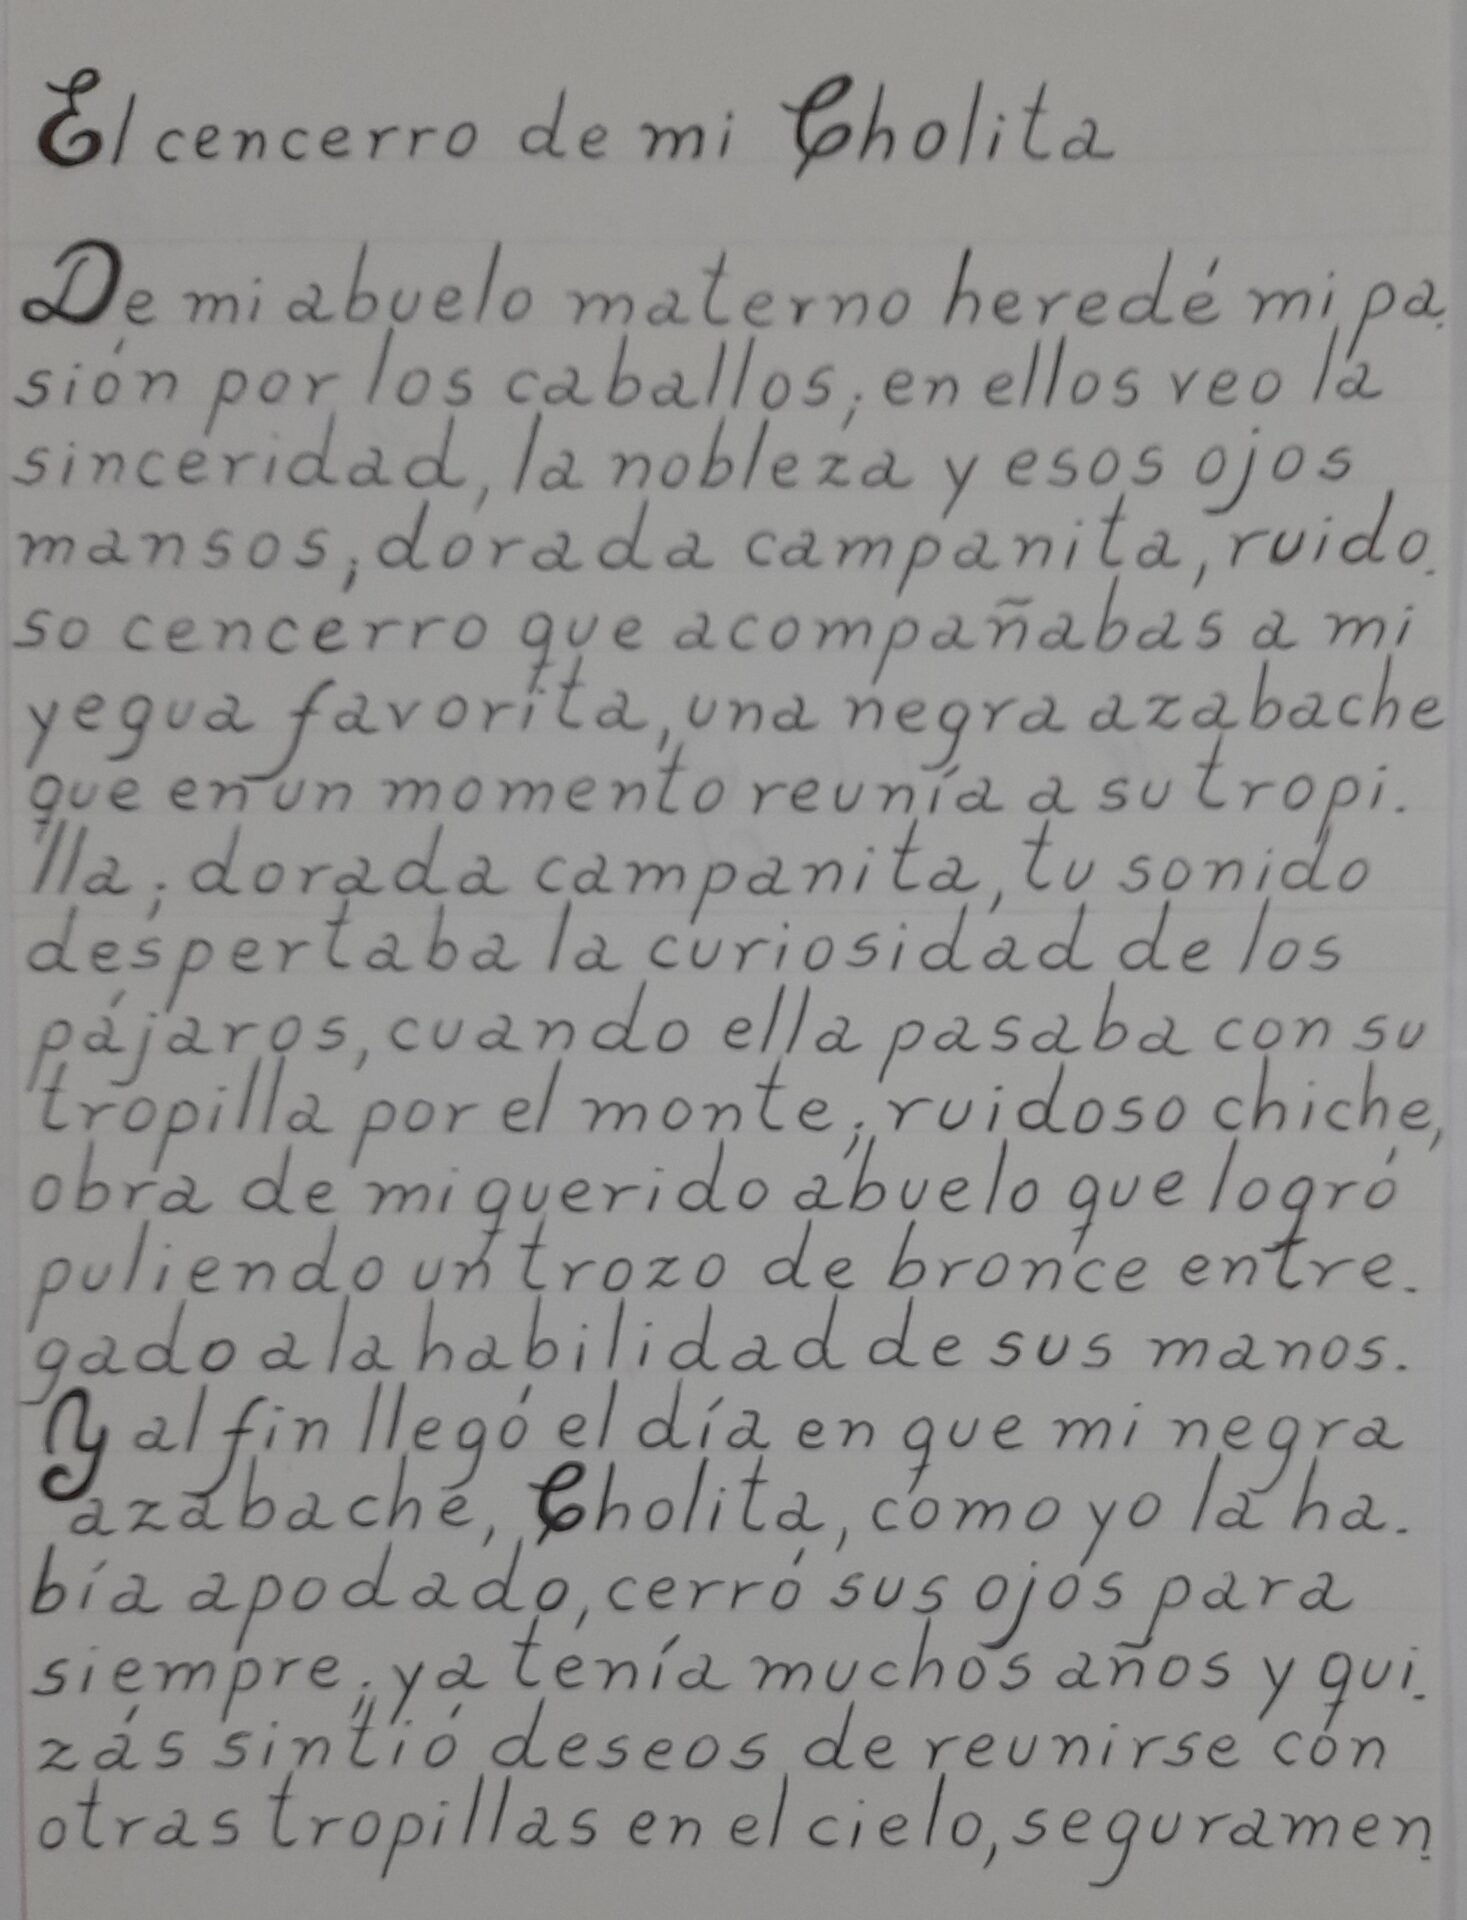 El cencerro de mi Cholita
De mi abuelo materno heredé mi pa-
sión por los caballos; en ellos veo la
sinceridad, la nobleza y esos ojos
mansos; dorada campanita, ruido-
so cencerro que acompañabas a mi
yegua favorita, una negra azabache
que en un momento reunía a su tropi-
lla; dorada campanita, tu sonido
despertaba la curiosidad de los
pájaros, cuando ella pasaba con su
tropilla por el monte; ruidoso chiche,
obra de mi querido abuelo que logró
puliendo un trozo de bronce entre-
gado a la habilidad de sus manos.
Y al fin llegó el día en que mi negra
azabache, Cholita, como yo la ha-
bía apodado, cerró sus ojos para
siempre; ya tenía muchos años y qui-
zás sintió deseos de reunirse con
otras tropillas en el cielo, seguramen-